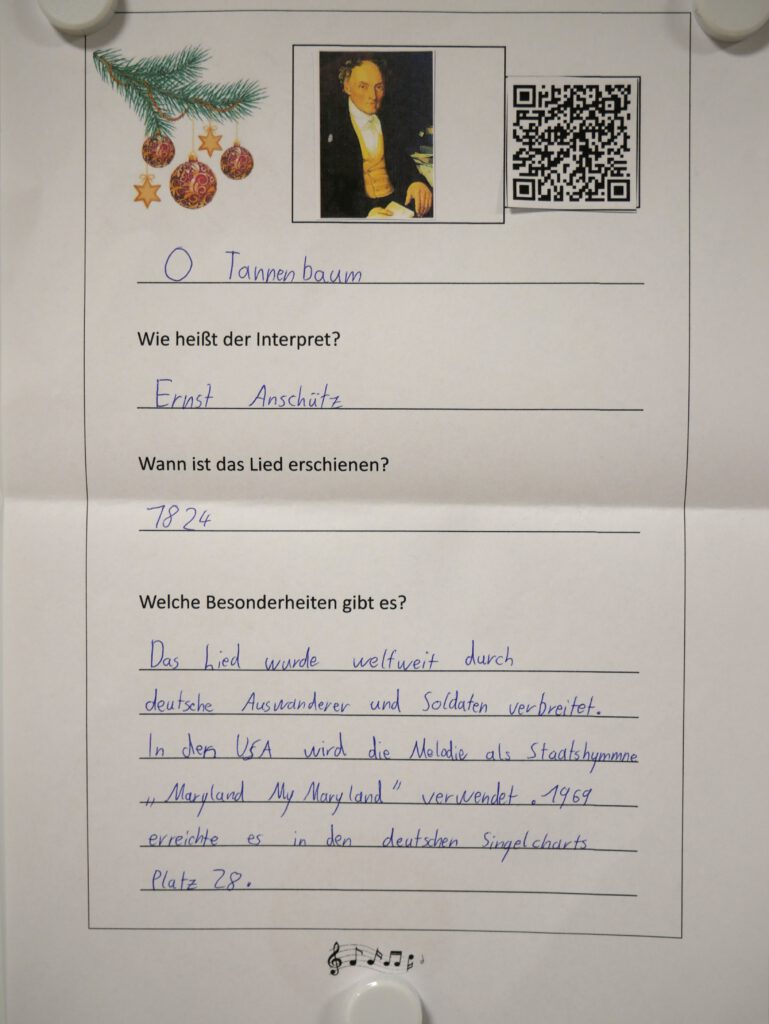 O Tannenbaum
Wie heißt der Interpret?
Ernst Anschütz
Wann ist das Lied erschienen?
1824
Welche Besonderheiten gibt es?
Das Lied wurde weltweit durch
deutsche Auswanderer und Soldaten verbreitet.
In den USA wird die Melodie als Staatshymmne
„Maryland My Maryland" verwendet. 1969
erreichte es in den deutschen Singelcharts
Platz 28.